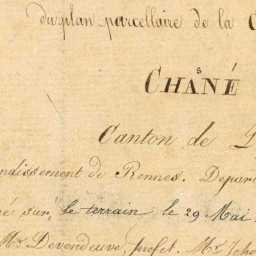 du plan parcellaire de la C
CHASNÉ
Canton de
ndissement de Rennes. Depar
é sur le terrain le 29 Mai
Mr. Devendeuve, préfet. Mr.